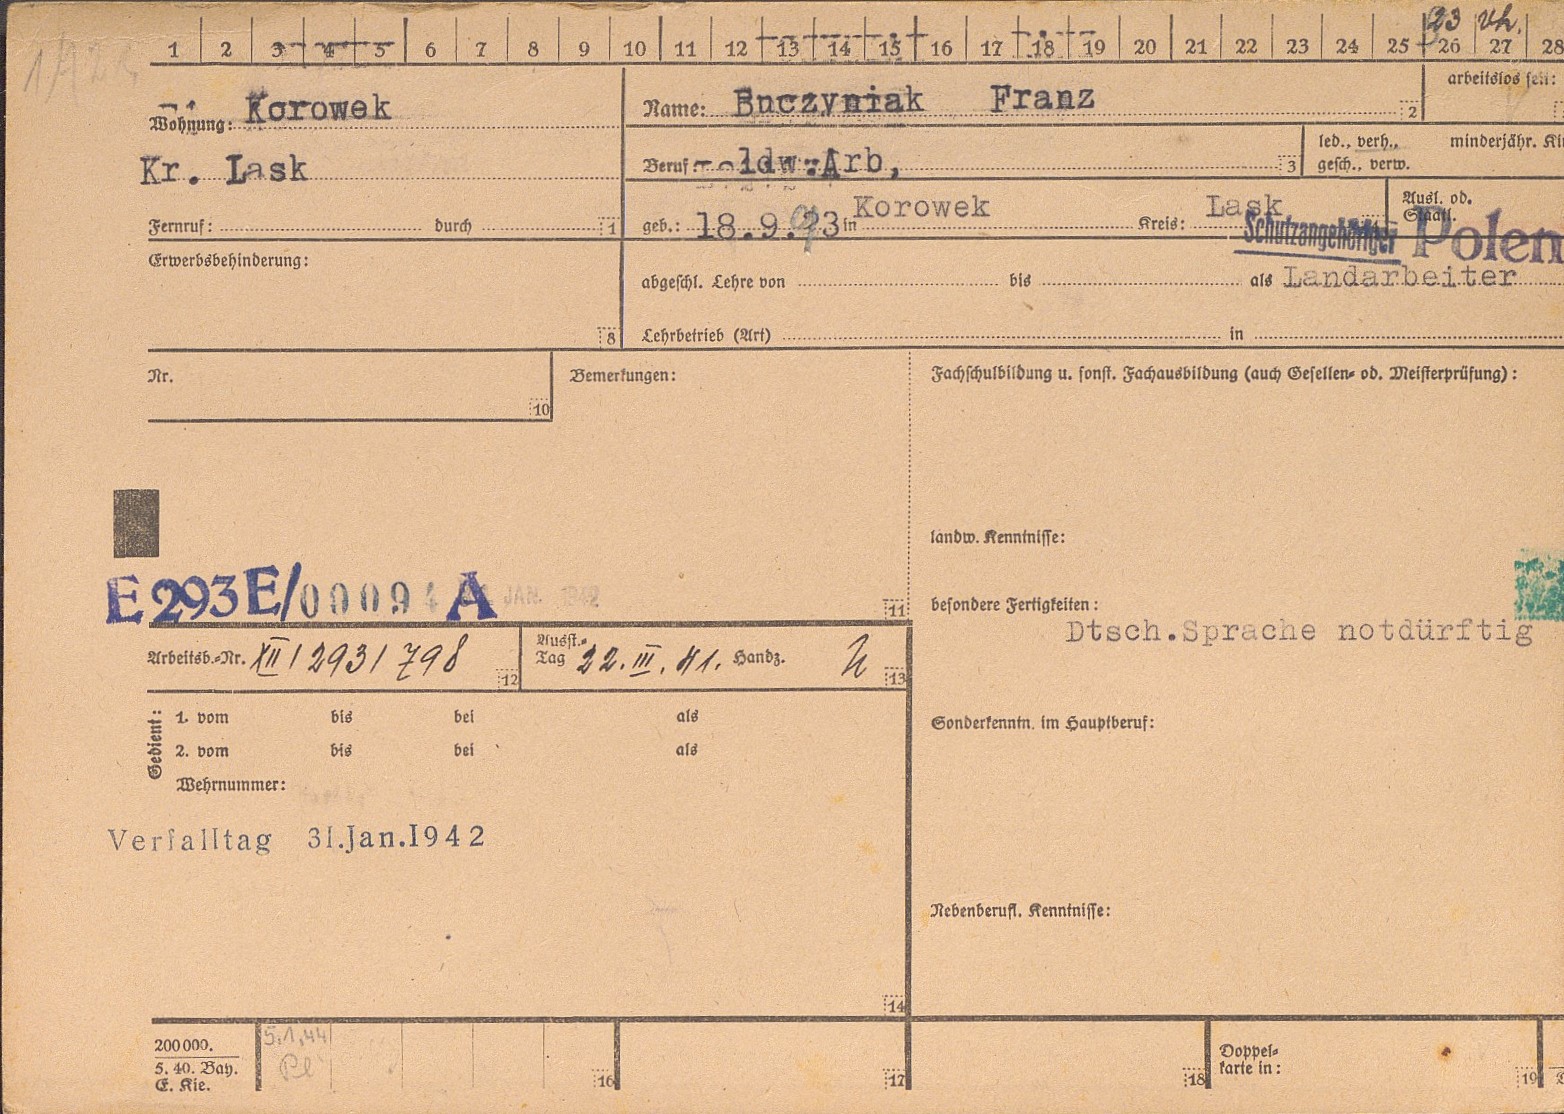 23 vh.
1 2 3 4 5 6 7 8 9 10 11 12 13 14 15 16 17 18 19 20 21 22 23 24 25 26 27 28
Wohnung: Korowek
Kr. Lask
Fernruf: durch 1
Name: Buczyniak Franz 2
arbeitslos seit:
Beruf: ldw.Arb, 3
led., verh., minderjähr. Ki
gesch., verw.
geb.: 18.9.23 in Korowek Kreis: Lask 4
Ausl. od.
Staatl.
Schutzangehöriger Polen
Erwerbsbehinderung:
8
abgeschl. Lehre von bis als Landarbeiter
Lehrbetrieb (Art) in
Nr.
10
Bemerkungen:
Fachschulbildung u. sonst. Fachausbildung (auch Gesellen- od. Meisterprüfung):
E 293 E/00094 A
11
landw. Kenntnisse:
besondere Fertigkeiten:
Dtsch.Sprache notdürftig
Arbeitsb.-Nr. XII/293/798 12
Ausst.-
Tag 22.III.41. Handz. 13
Gedient:
1. vom bis bei als
2. vom bis bei als
Wehrnummer:
Sonderkenntn. im Hauptberuf:
Verfalltag 31.Jan.1942
Nebenberufl. Kenntnisse:
14
200000.
5. 40. Bay.
E. Kie.
5.1.44
16
17
18
Doppel-
karte in:
19